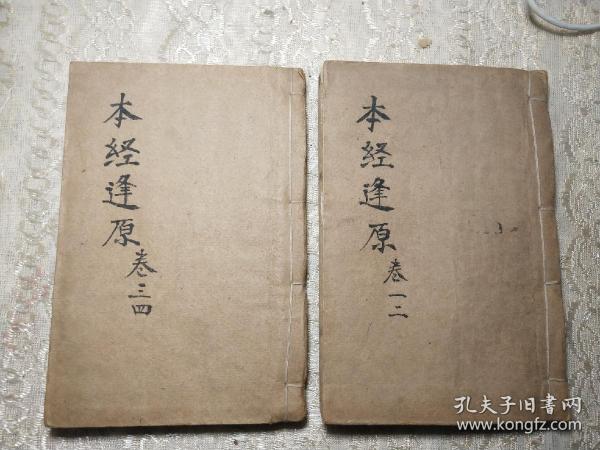 本经逢原
卷三四
本经逢原
卷一二
孔夫子旧书网
www.kongfz.com